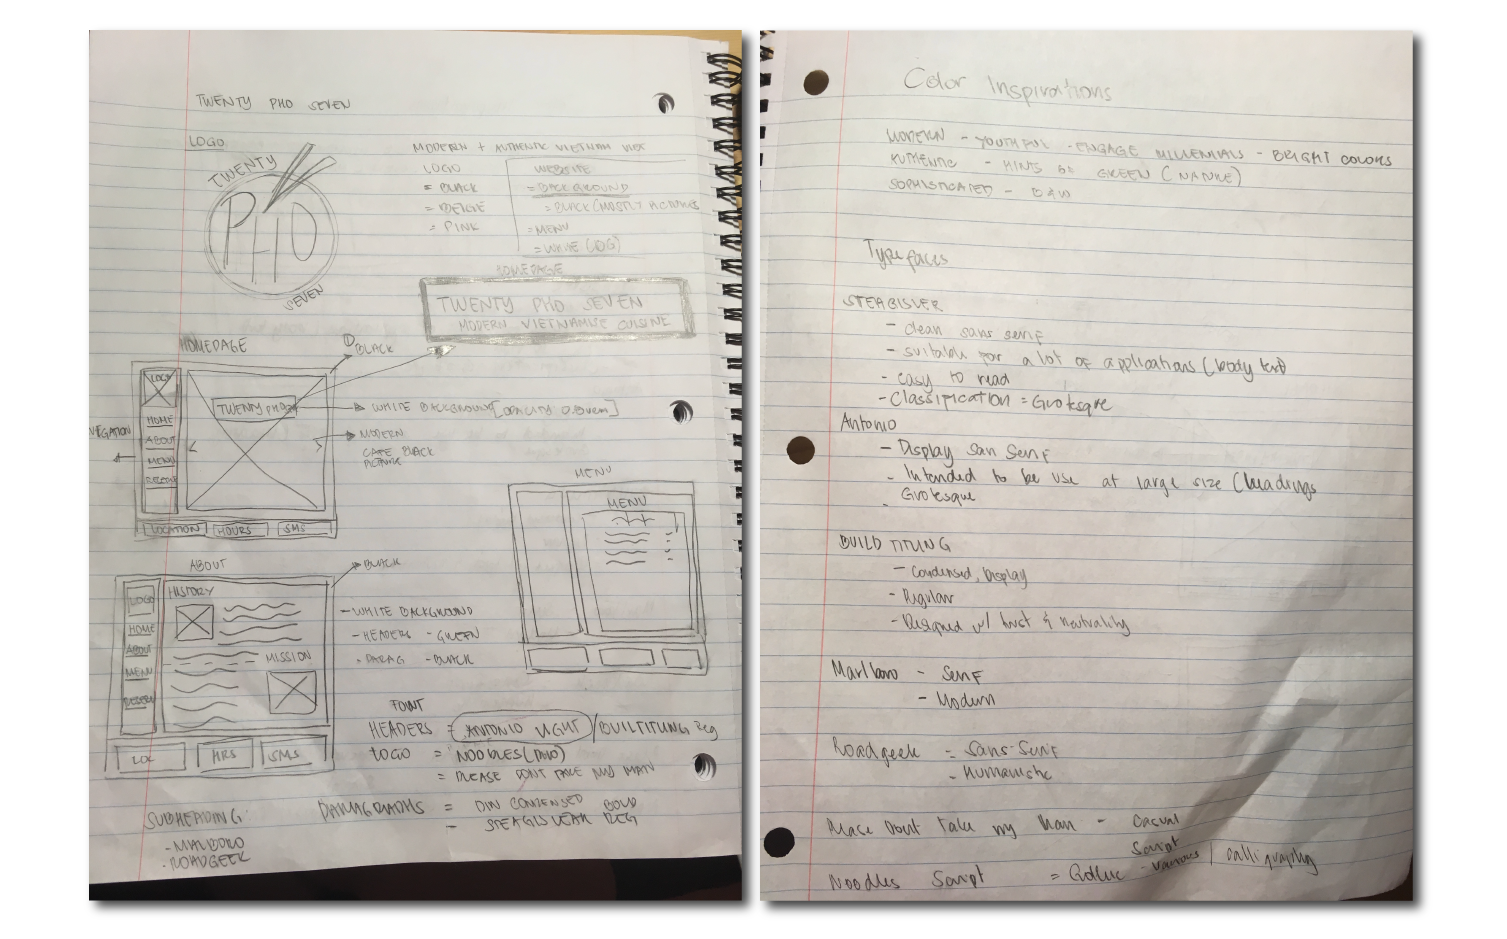 TWENTY PHO SEVEN
LOGO
TWENTY
PHO
SEVEN
MODERN + AUTHENTIC VIETNAM VIBE
LOGO
= BLACK
= BEIGE
= PINK
WEBSITE
= BACKGROUND
= BLACK (MOSTLY PICTURES
= MENU
= WHITE (LOG)
HOMEPAGE
TWENTY PHO SEVEN
MODERN VIETNAMESE CUISINE
HOMEPAGE
LOGO
HOME
ABOUT
MENU
VIGATION
TWENTY PHO
LOCATION
HOURS
SMS
① BLACK
WHITE BACKGROUND
MODERN
CAFE BLACK
PICTURE
MENU
MENU
ABOUT
LOGO
HOME
ABOUT
MENU
HISTORY
MISSION
LOC
HRS
SMS
BLACK
- WHITE BACKGROUND
- HEADERS - GREEN
- PARAG - BLACK
FONT
HEADERS = ANTONIO LIGHT / BUILTITLING Reg
LOGO = NOODLES (PHO)
= PLEASE DONT TAKE MY MAN
PARAGRAPHS = DIN CONDENSED BOLD
- STEAGISLEAR REG
SUBHEADING
- MARLBORO
- ROADGEEK
Color Inspirations
MODERN - YOUTHFUL - ENGAGE MILLENNIALS - BRIGHT COLORS
AUTHENTIC - HINTS OF GREEN (NATURE)
SOPHISTICATED - B&W
Typefaces
- clean sans serif
- suitable for a lot of applications (body text)
- easy to read
- Classification = Grotesque
Antonio
- Display San Serif
- Intended to be use at large size (headings
Grotesque
-
BUILD TITLING
- Condensed, Display
- Regular
- Designed w/ trust & neutrality
Marlboro - Serif
- Modern
Roadgeek = Sans-Serif
- Humanistic
Please Dont Take my Man - Casual
Script
Noodles Script = - various / calligraphy